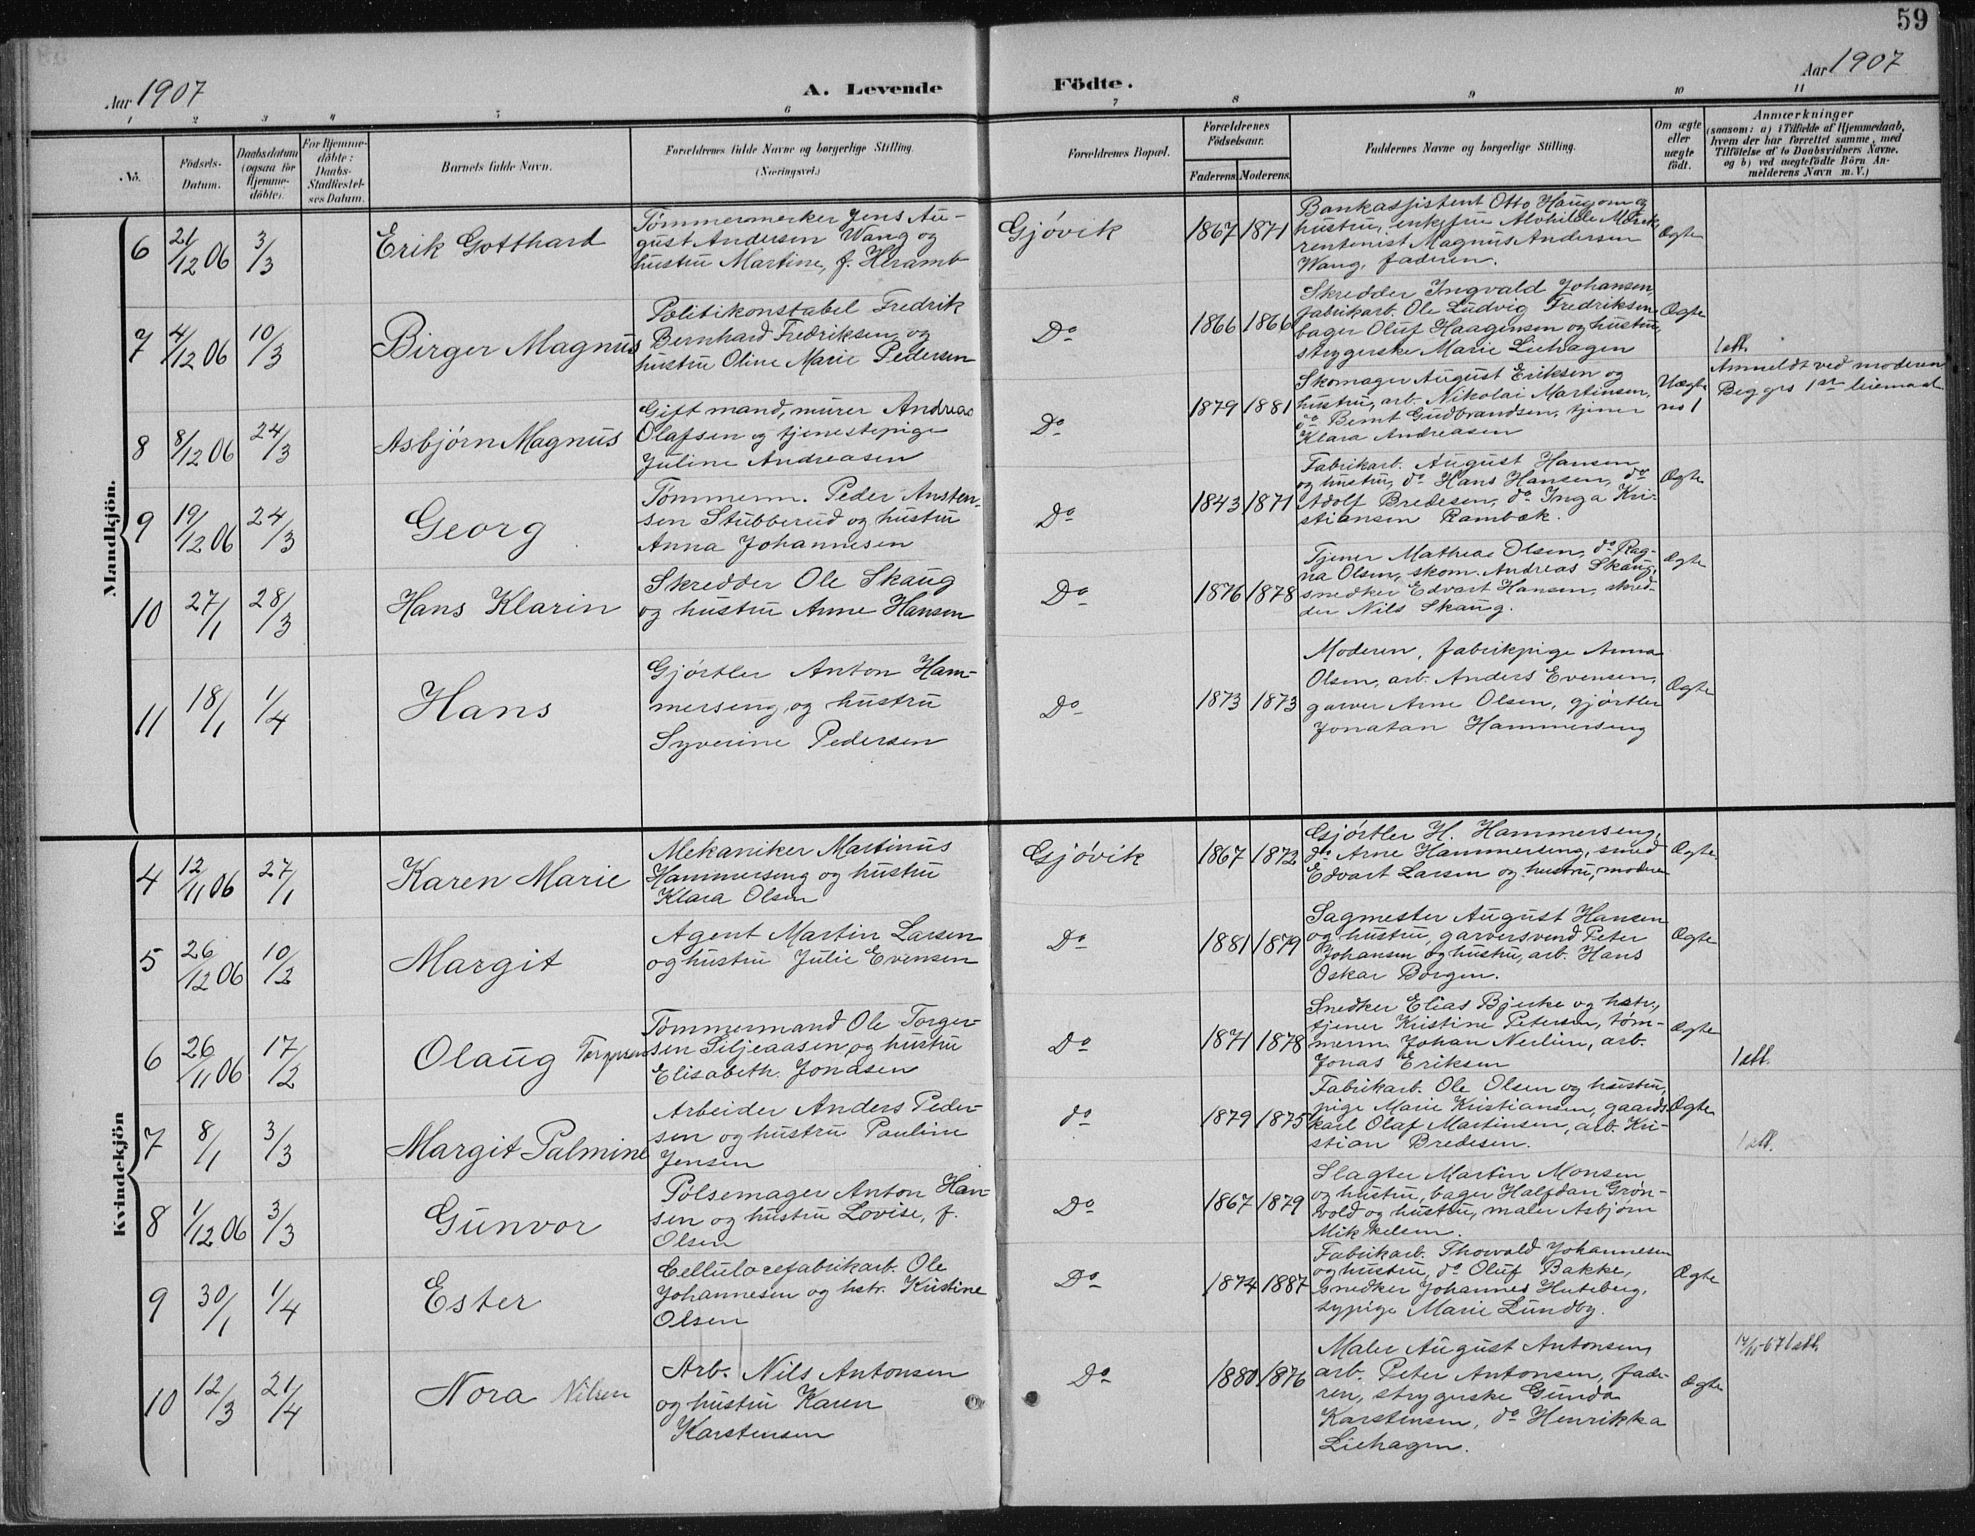 59
Aar 1907
A. Levende Födte.
Aar 1907
1 2 3 4 5 6 7 8 9 10 11
No.
Födsels-
Datum.
Daabsdatum
(ogsaa for
Hjemme-
döbte).
For Hjemme-
döbte:
Daabs-
Stadfestel-
ses Datum.
Barnets fulde Navn.
Forældrenes fulde Navne og borgerlige Stilling.
(Næringsvei.)
Forældrenes Bopæl.
Forældrenes
Födselsaar.
Faderens. Moderens.
Faddernes Navne og borgerlige Stilling.
Om ægte
eller
uægte
født.
Anmærkninger
(saasom: a) i Tilfælde af Hjemmedaab,
hvem der har forrettet samme, med
Tilföielse af to Daabsvidners Navne,
og b) ved uægtefödte Börn An-
melderens Navn m. V.)
Mandkjön.
6 21/12 06 3/3 Erik Gotthard
Tømmermerker Jens Au-
gust Andersen Wang og
hustru Martine, f. Heramb
Gjøvik 1867 1871
Bankassistent Otto Haugom og
hustru, enkefru Alvhilde Mørk,
rentenist Magnus Andersen
Wang, faderen.
Ægte
7 4/12 06 10/3 Birger Magnus
Politikonstabel Fredrik
Bernhard Fredriksen og
hustru Oline Marie Pedersen
Do 1866 1866
Skredder Ingvald Johansen,
fabrikarb. Ole Ludvig Fredriksen,
bager Oluf Haagensen og hustru,
strygerske Marie Liehagen
Ægte
1 att.
8 8/12 06 24/3 Asbjørn Magnus
Gift mand, murer Andreas
Olafsen og tjenestepige
Juline Andreasen
Do 1879 1881
Skomager August Eriksen og
hustru, arb. Nikolai Martinsen,
do Bernt Gudbrandsen, tjener
Klara Andreasen
Uægte
no 1
Anmeldt ved moderen
Beg grs 1ste leiemaal
9 19/12 06 24/3 Georg
Tømmerm. Peder Ansten-
sen Stubberud og hustru
Anna Johannesen
Do 1843 1871
Fabrikarb. August Hansen
og hustru, do Hans Hansen, do
Adolf Bredesen, do Inga Kri-
stiansen Rambæk.
Ægte
10 27/1 28/3 Hans Klarin
Skredder Ole Skaug
og hustru Anne Hansen
Do 1876 1878
Tjener Mathea Olsen, do Rag-
na Olsen, skom. Andreas Skaug,
snedker Edvart Hansen, skred-
der Nils Skaug.
Ægte
11 18/1 1/4 Hans
Gjørtler Anton Ham-
merseng og hustru
Syverine Pedersen
Do 1873 1873
Moderen, fabrikpige Anna
Olsen, arb. Anders Evensen,
garver Arne Olsen, gjørtler
Jonatan Hammerseng
Ægte
Kvindekjön
4 12/11 06 27/1 Karen Marie
Mekaniker Martinus
Hammerseng og hustru
Klara Olsen
Gjøvik 1867 1872
Gjørtler H. Hammerseng,
do Arne Hammerseng, smed
Edvart Larsen og hustru, moderen
Ægte
5 26/12 06 10/2 Margit
Agent Martin Larsen
og hustru Julie Evensen
Do 1881 1879
Sagmester August Hansen
og hustru, garversvend Peter
Johansen og hustru, arb. Hans
Oskar Borgen.
Ægte
6 26/11 06 17/2 Olaug Torgersen
Tømmermand Ole Torger-
sen Siljeaasen og hustru
Elisabeth Jonasen
Do 1871 1878
Snedker Elias Bjerke og hstr.,
tjener Kristine Petersen, tøm-
merm. Johan Nerlien, arb.
Jonas Eriksen
Ægte
1 att.
7 8/1 3/3 Margit Palmine
Arbeider Anders Peder-
sen og hustru Pauline
Jensen
do 1879 1875
Fabrikarb. Ole Olsen og hustru,
pige Marie Kristiansen, gaards-
karl Olaf Martinsen, arb. Kri-
stian Bredesen.
Ægte
1 att.
8 1/12 06 3/3 Gunvor
Pølsemager Anton Han-
sen og hustru Lovise, f.
Olsen
Do 1867 1879
Slagter Martin Monsen
og hustru, bager Halfdan Grøn-
vold og hustru, maler Asbjørn
Mikkelsen.
9 30/1 1/4 Ester
Cellulosefabrikarb. Ole
Johannesen og hstr. Kristine
Olsen
Do 1874 1887
Fabrikarb. Thorvald Johannesen
og hustru, do Oluf Bakke,
snedker Johannes Huteberg,
sypige Marie Lundby.
Ægte
10 12/3 21/4 Nora Nilsen
Arb. Nils Antonsen
og hustru Karen
Karstensen
Do 1880 1876
Maler August Antonsen,
arb. Peter Antonsen, fade-
ren, strygerske Gunda
Karstensen, do Henrikka
Liehagen.
Ægte
1 att.